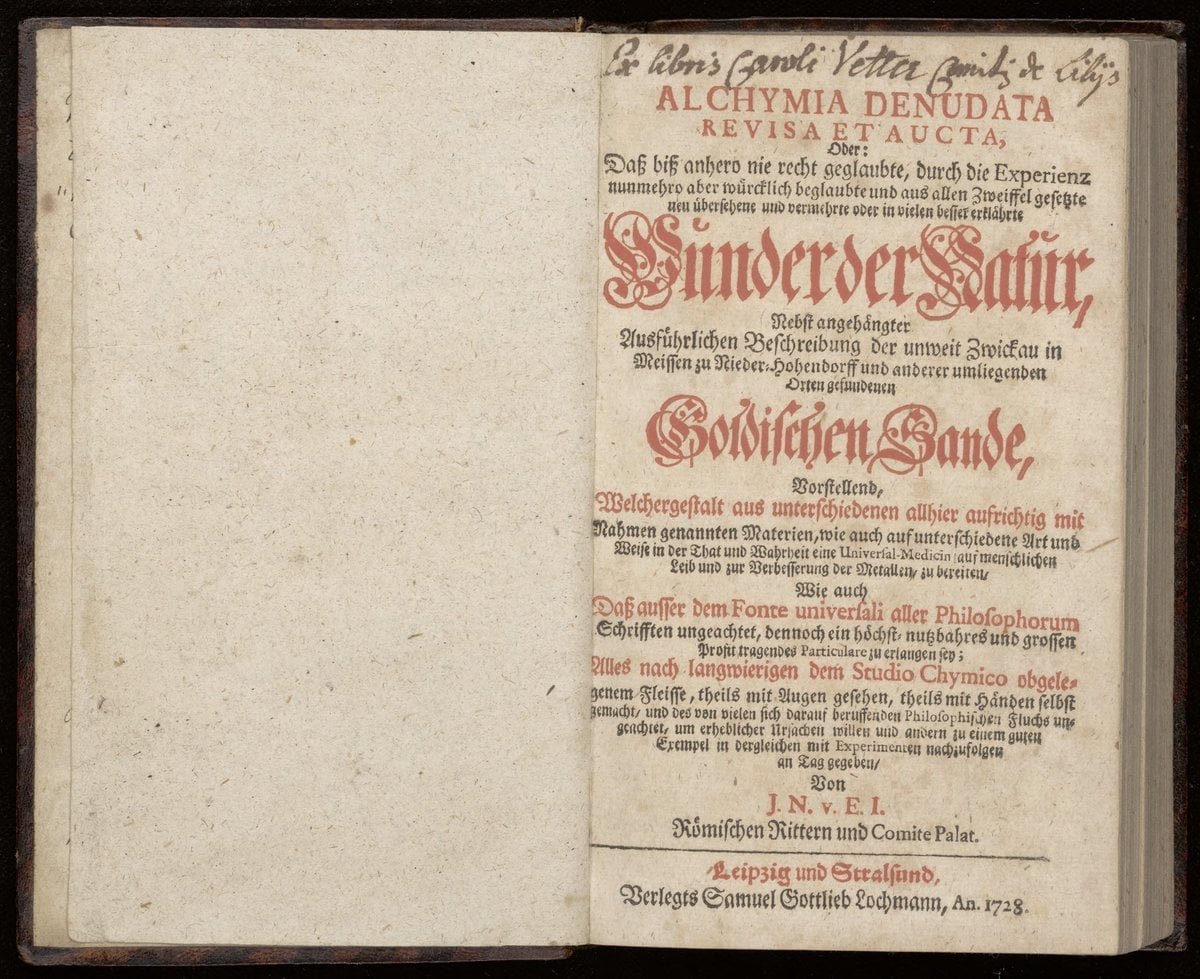 Ex libris Caroli Vetter Comitis de Lilijs
ALCHYMIA DENUDATA
REVISA ET AUCTA,
Oder:
Daß biß anhero nie recht geglaubte, durch die Experienz
nunmehro aber würcklich beglaubte und aus allen Zweiffel gesetzte
neu übersehene und vermehrte oder in vielen besser erklährte
Wunder der Natur,
Nebst angehängter
Ausführlichen Beschreibung der unweit Zwickau in
Meissen zu Nieder-Hohendorff und anderer umliegenden
Orten gefundenen
Goldischen Sande,
Vorstellend,
Welchergestalt aus unterschiedenen allhier aufrichtig mit
Nahmen genannten Materien, wie auch auf unterschiedene Art und
Weise in der That und Wahrheit eine Universal-Medicin auf menschlichen
Leib und zur Verbesserung der Metallen/ zu bereiten/
Wie auch
Daß ausser dem Fonte universali aller Philosophorum
Schrifften ungeachtet, dennoch ein höchst-nutzbahres und grossen
Profit tragendes Particulare zu erlangen sey;
Alles nach langwierigen dem Studio Chymico obgele-
genem Fleisse, theils mit Augen gesehen, theils mit Händen selbst
gemacht/ und des von vielen sich darauf beruffenden Philosophischen Fluchs un-
geachtet, um erheblicher Ursachen willen und andern zu einem guten
Exempel in dergleichen mit Experimenten nachzufolgen
an Tag gegeben/
Von
J. N. v. E. I.
Römischen Rittern und Comite Palat.
Leipzig und Stralsund,
Verlegts Samuel Gottlieb Lochmann, An. 1728.